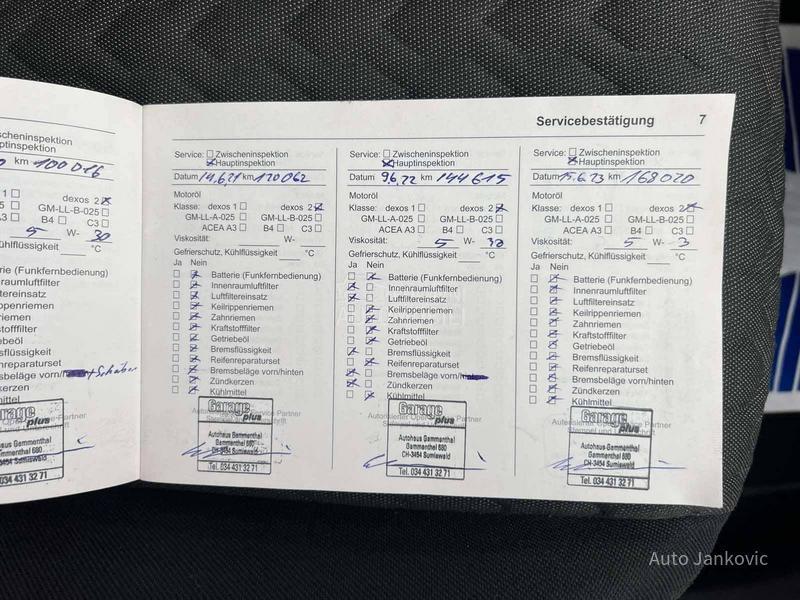 Servicebestätigung 7
cheninspektion
ptinspektion
km 100016
1
dexos 2
GM-LL-B-025
A3 B4 C3
5 W- 30
ühlflüssigkeit °C
rie (Funkfernbedienung)
nraumluftfilter
tereinsatz
rippenriemen
riemen
stofffilter
ebeöl
sflüssigkeit
nreparaturset
sbeläge vorn/
kerzen
mittel
Garage
plus
Autohaus Gammenthal
Gammenthal 680
CH-3454 Sumiswald
Tel. 034 431 32 71
Service: Zwischeninspektion
Hauptinspektion
Datum 14.6.21 km 120062
Motoröl
Klasse: dexos 1 dexos 2
GM-LL-A-025 GM-LL-B-025
ACEA A3 B4 C3
Viskosität: W-
Gefrierschutz, Kühlflüssigkeit °C
Ja Nein
Batterie (Funkfernbedienung)
Innenraumluftfilter
Luftfiltereinsatz
Keilrippenriemen
Zahnriemen
Kraftstofffilter
Getriebeöl
Bremsflüssigkeit
Reifenreparaturset
Bremsbeläge vorn/hinten
Zündkerzen
Kühlmittel
Garage
plus
Autohaus Gammenthal
Gammenthal 680
CH-3454 Sumiswald
Tel. 034 431 32 71
Service: Zwischeninspektion
Hauptinspektion
Datum 9.6.22 km 144615
Motoröl
Klasse: dexos 1 dexos 2
GM-LL-A-025 GM-LL-B-025
ACEA A3 B4 C3
Viskosität: 5 W- 30
Gefrierschutz, Kühlflüssigkeit °C
Ja Nein
Batterie (Funkfernbedienung)
Innenraumluftfilter
Luftfiltereinsatz
Keilrippenriemen
Zahnriemen
Kraftstofffilter
Getriebeöl
Bremsflüssigkeit
Reifenreparaturset
Bremsbeläge vorn/
Zündkerzen
Kühlmittel
Garage
plus
Autohaus Gammenthal
Gammenthal 680
CH-3454 Sumiswald
Tel. 034 431 32 71
Service: Zwischeninspektion
Hauptinspektion
Datum 15.6.23 km 168020
Motoröl
Klasse: dexos 1 dexos 2
GM-LL-A-025 GM-LL-B-025
ACEA A3 B4 C3
Viskosität: 5 W- 3
Gefrierschutz, Kühlflüssigkeit °C
Ja Nein
Batterie (Funkfernbedienung)
Innenraumluftfilter
Luftfiltereinsatz
Keilrippenriemen
Zahnriemen
Kraftstofffilter
Getriebeöl
Bremsflüssigkeit
Reifenreparaturset
Bremsbeläge vorn/hinten
Zündkerzen
Kühlmittel
Garage
plus
Autohaus Gammenthal
Gammenthal 680
CH-3454 Sumiswald
Tel. 034 431 32 71
Auto Jankovic